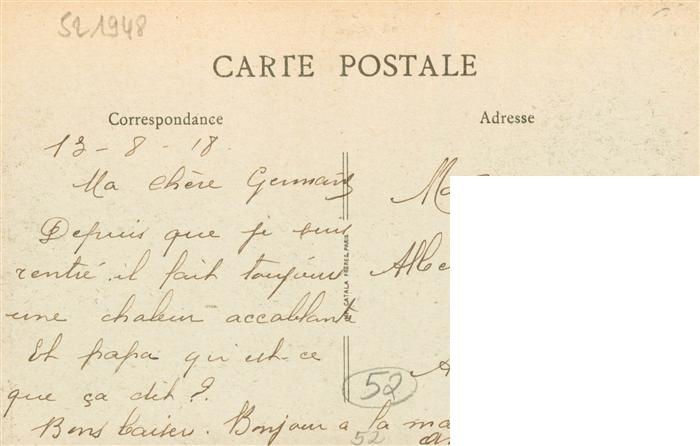 521948
CARTE POSTALE
Correspondance
Adresse
13 - 8 - 18.
Ma chère Germaine
Depuis que je suis
rentré il fait toujours
une chaleur accablante
Et papa qu'est-ce
que ça dit ?
Bons baiser. Bonjour a la
IMP. CATALA FRÈRES, PARIS
52
52